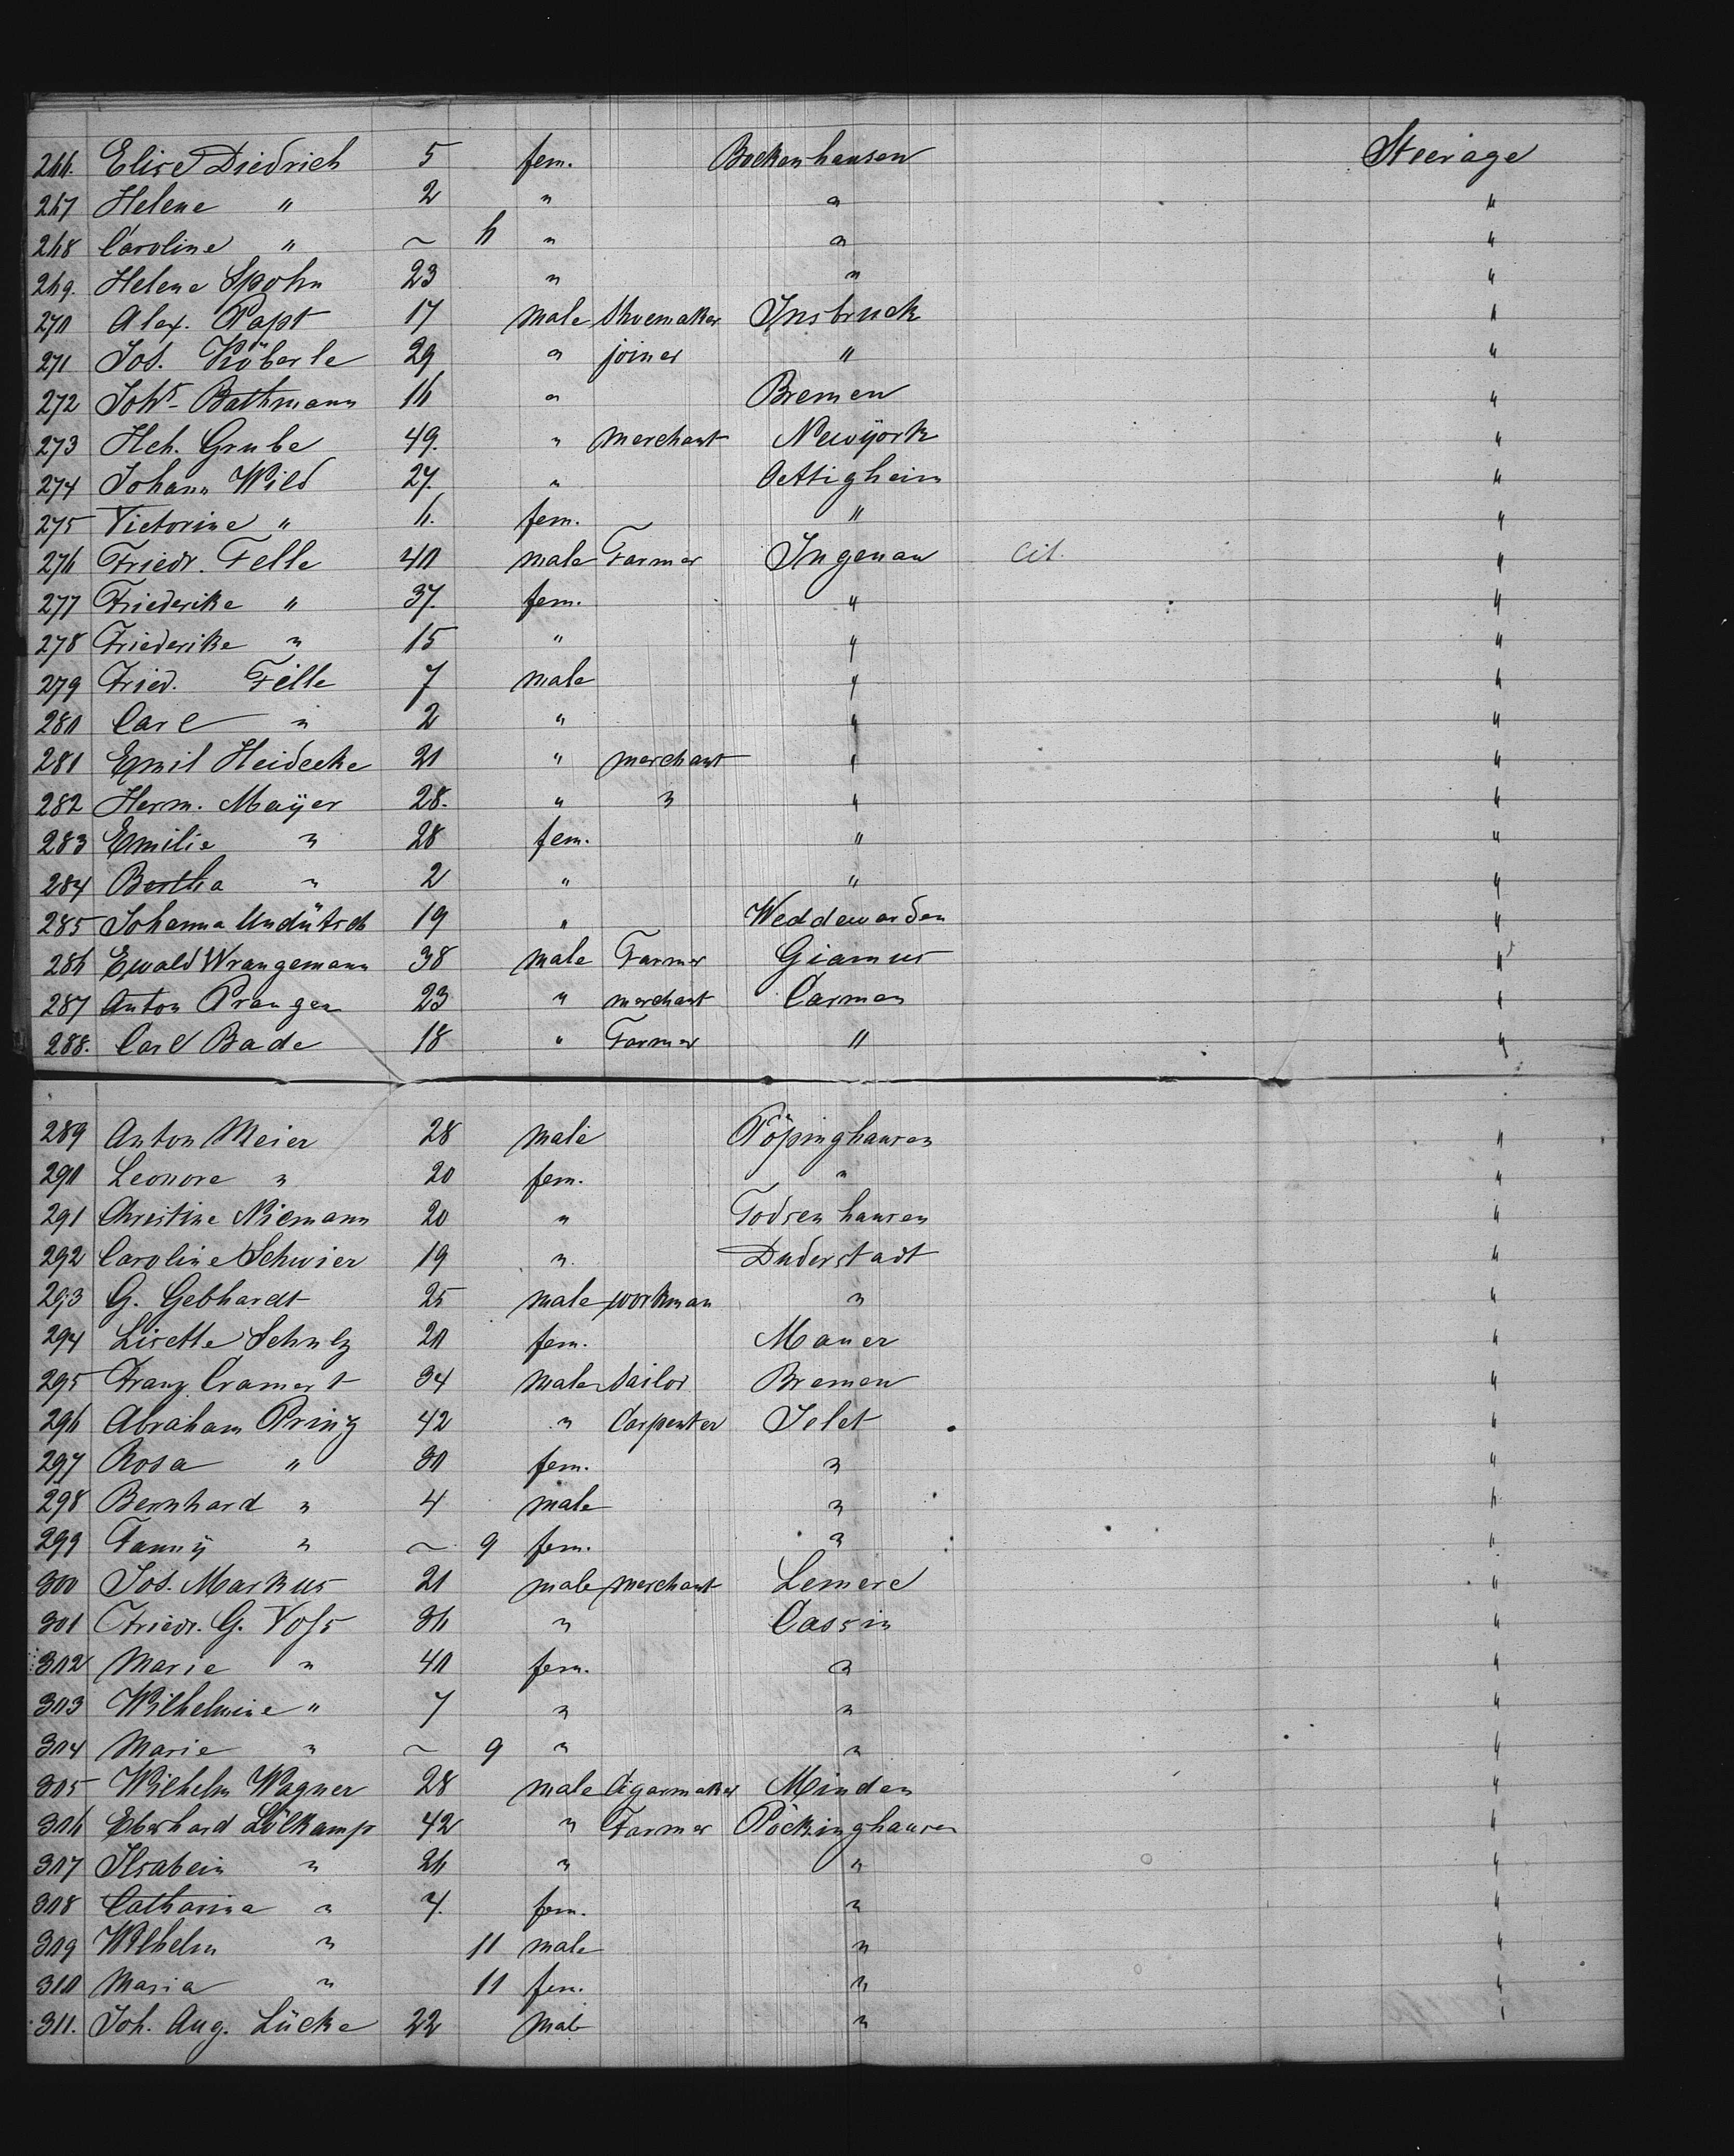 266. Elise Diedrich 5 fem. Bockenhausen Steerage
267 Helene " 2 " " "
268 Caroline " ~ 6 " " "
269. Helene Spohn 23 " " "
270 Alex. Papt 17 male Shoemaker Insbruck "
271 Jos. Köberle 29 " joiner " "
272 Joh. Bathmann 16 " Bremen "
273 Hch. Grube 49. " merchant Newÿork "
274 Johann Wild 27. " Oettigheim "
275 Victorine " 6. fem. " "
276 Friedr. Felle 40 male Farmer Ingenau cit. "
277 Friederike " 37. fem. " "
278 Friederike " 15 " " "
279 Fried. Felle 7 male " "
280 Carl " 2 " " "
281 Emil Heidecke 21 " merchant " "
282 Herm. Maÿer 28. " " " "
283 Emilie " 28 fem. " "
284 Bertha " 2 " " "
285 Johanna Undütsch 19 " Weddewarden "
286 Ewald Wrangemann 38 male Farmer "
287 Anton Pranger 23 " merchant Barmen "
288. Carl Bade 18 " Farmer " "
289 Anton Meier 28 male Pöpinghausen "
290 Leonore " 20 fem. " "
291 Christine Niemann 20 " Todsenhausen "
292 Caroline Schwier 19 " Duderstadt "
293 G. Gebhardt 25 male workman " "
294 Lisette Schulz 20 fem. Mauer "
295 Franz Cramert 34 male Sailor Bremen "
296 Abraham Prinz 42 " Carpenter Jelet "
297 Rosa " 30 fem. " "
298 Bernhard " 4 male " "
299 Fannÿ " ~ 9 fem. " "
300 Jos. Markus 21 male merchant Lemere "
301 Friedr. G. Voss 36 " Cassin "
302 Marie " 40 fem. " "
303 Wilhelmine " 7 " " "
304 Marie " ~ 9 " " "
305 Wilhelm Wagner 28 male Cigarmaker Minden "
306 Eberhard Lölkamp 42 " Farmer Pöckinghausen "
307 Ilsabein " 26 " " "
308 Catharina " 4. fem. " "
309 Wilhelm " 11 male " "
310 Maria " 11 fem. " "
311. Joh. Aug. Lücke 22 male " "